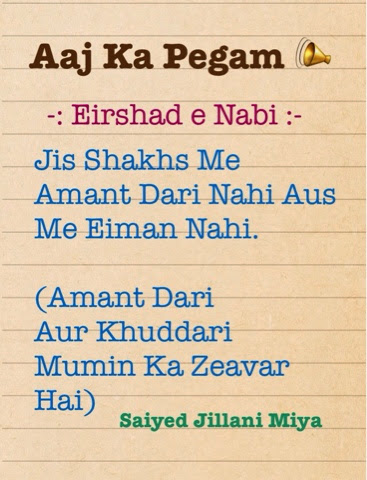 Aaj Ka Pegam
-: Eirshad e Nabi :-
Jis Shakhs Me
Amant Dari Nahi Aus
Me Eiman Nahi.
(Amant Dari
Aur Khuddari
Mumin Ka Zeavar
Hai)
Saiyed Jillani Miya